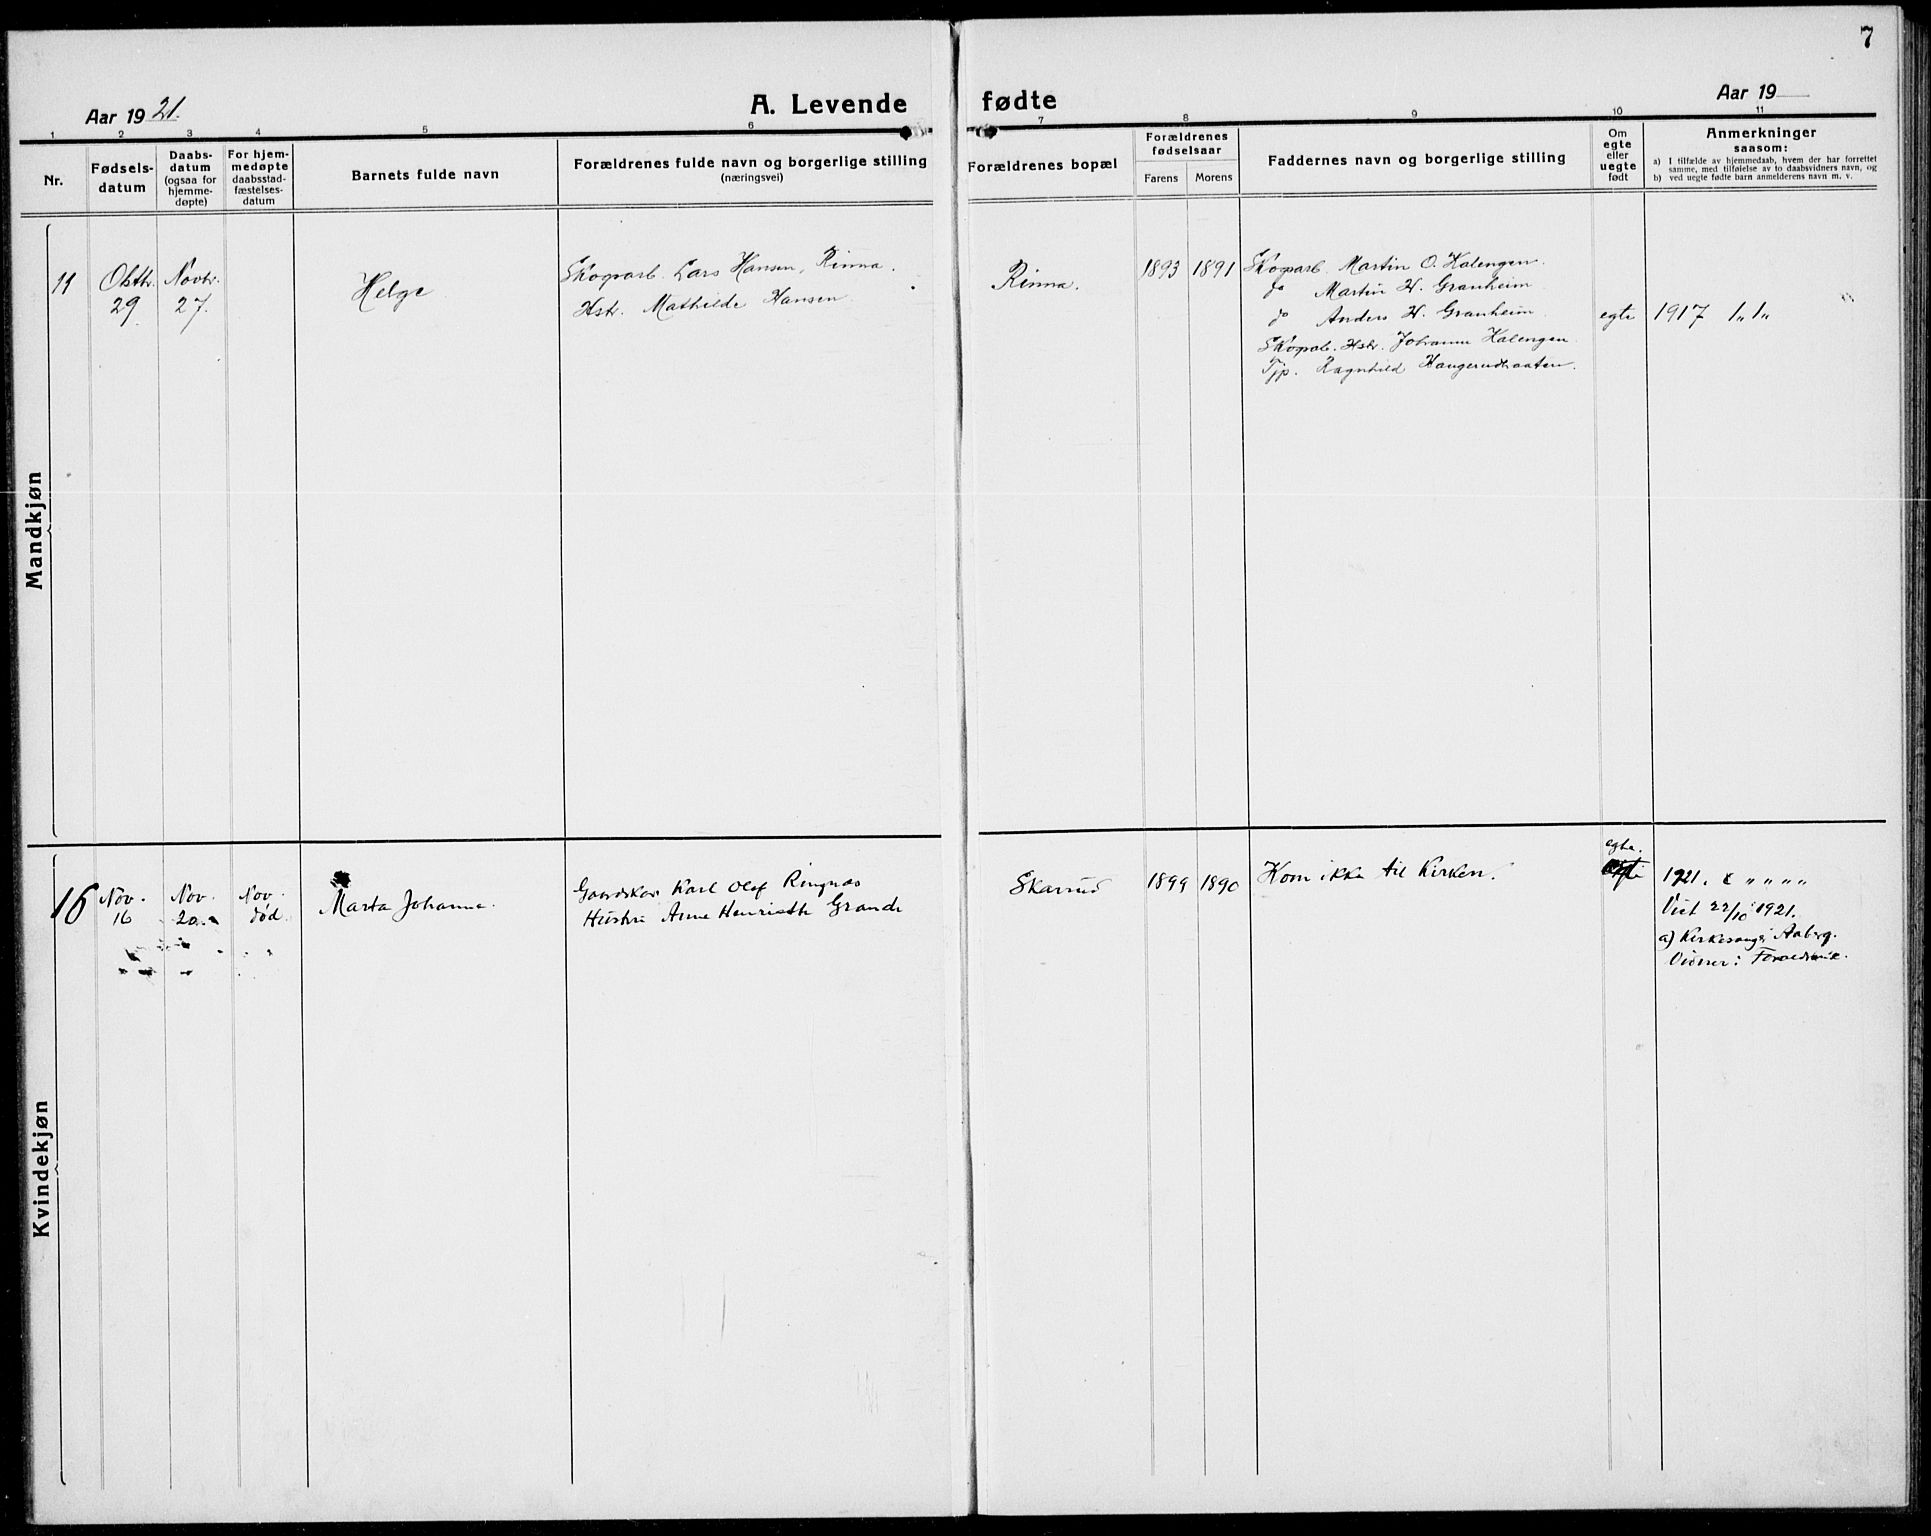 7
Aar 1921.
A. Levende fødte
Aar 19
1 2 3 4 5 6 7 8 9 10 11
Nr.
Fødsels-
datum
Daabs-
datum
(ogsaa for
hjemme-
døpte)
For hjem-
medøpte
daabsstad-
fæstelses-
datum
Barnets fulde navn
Forældrenes fulde navn og borgerlige stilling
(næringsvei)
Forældrenes bopæl
Forældrenes
fødselsaar
Farens Morens
Faddernes navn og borgerlige stilling
Om
egte
eller
uegte
født
Anmerkninger
saasom:
a) I tilfælde av hjemmedaab, hvem der har forrettet
samme, med tilføielse av to daabsvidners navn, og
b) ved uegte fødte barn anmelderens navn m. v.
Mandkjøn
11
Oktbr.
29
Novbr.
27.
Helge
Skogarb. Lars Hansen, Rinna.
Hstr. Mathilde Hansen
Rinna.
1893 1891
Skogarb. Martin O. Kalengen.
do Martin H. Granheim
do Anders H. Granheim
Skogarb. Hstr. Johanne Kalengen.
Tjp. Ragnhild Haugerudbraaten.
egte
1917 1 „ 1 „
Kvindekjøn
16
Nov.
16
Nov.
20.
Nov.
død.
Marta Johanne.
Gaardskar Karl Olaf Ringnæs
Hustru Anne Henriette Grande
Skarrud
1899 1890
Kom ikke til Kirken.
egte.
1921. „ „ „ „
Viet 22/10 1921.
a) Kirkesanger Aaberg.
Vidner: Forældrene.